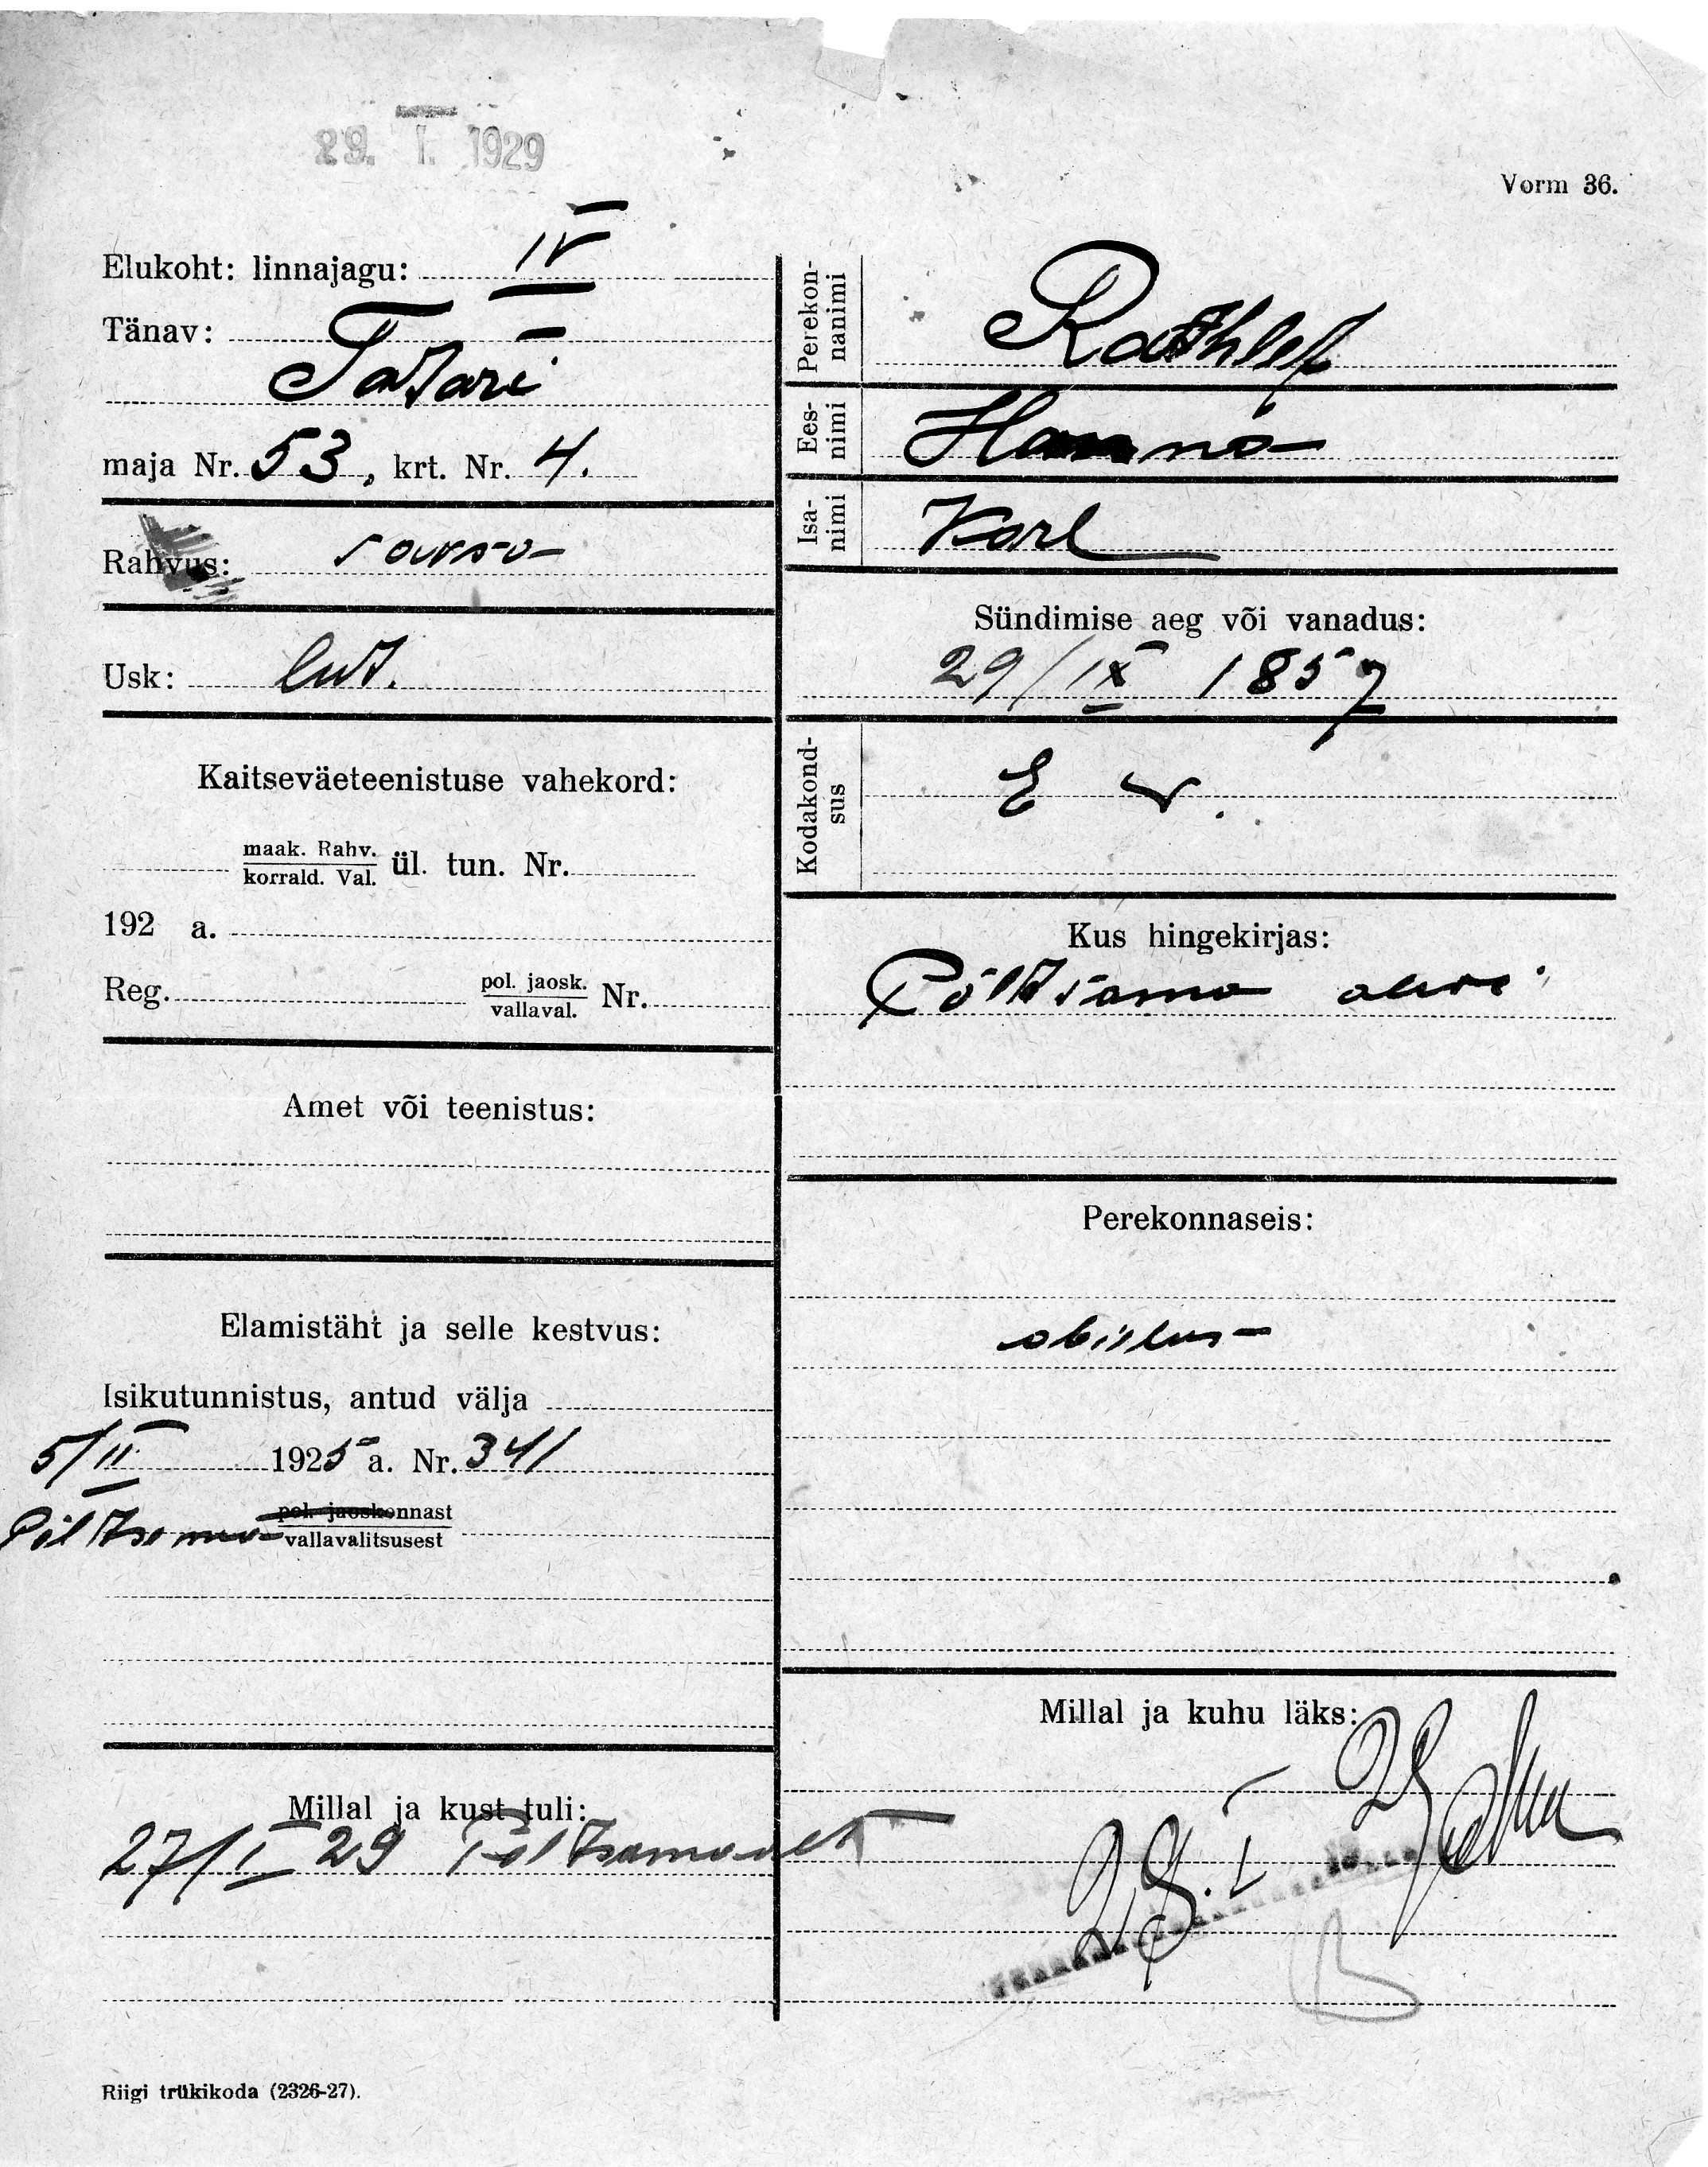 29. I. 1929
Vorm 36.
Elukoht: linnajagu: IV
Tänav:
Tatari
maja Nr. 53, krt. Nr. 4.
Rahvus: saksa
Usk: lut.
Kaitseväeteenistuse vahekord:
maak. Rahv.
korrald. Val. ül. tun. Nr.
192 a.
Reg. pol. jaosk.
vallaval. Nr.
Amet või teenistus:
Elamistäht ja selle kestvus:
Isikutunnistus, antud välja
5/II 1925 a. Nr. 341
pol. jaoskonnast
Põltsama vallavalitsusest
Millal ja kust tuli:
27/I 29 Põltsamaalt
Perekon-
nanimi
Rathlef
Ees-
nimi
Hanna
Isa-
nimi
Karl
Sündimise aeg või vanadus:
29/IX 1857
Kodakond-
sus
E v.
Kus hingekirjas:
Põltsama alevi
Perekonnaseis:
abielus
Millal ja kuhu läks:
28. I 29
Riigi trükikoda (2326-27).